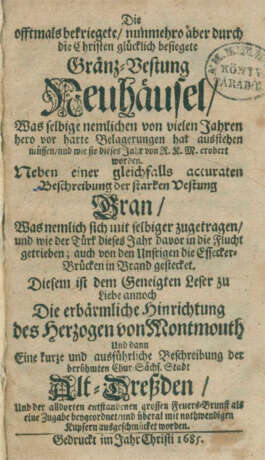 Die
offtmals bekriegete / nunmehro aber durch
die Christen glücklich besiegete
Gränz-Vestung
Neuhäusel /
Was selbige nemlichen von vielen Jahren
hero vor harte Belagerungen hat ausstehen
müssen / und wie sie dieses Jahr von R. K. M. erobert
worden.
Neben einer gleichfalls accuraten
Beschreibung der starken Vestung
Gran /
Was nemlich sich mit selbiger zugetragen /
und wie der Türk dieses Jahr davor in die Flucht
getrieben; auch von den Unsrigen die Essecker-
Brücken in Brand gestecket.
Diesem ist dem Geneigten Leser zu
Liebe annoch
Die erbärmliche Hinrichtung
des Herzogen von Montmouth
Und dann
Eine kurze und ausführliche Beschreibung der
berühmten Chur-Sächs. Stadt
Alt-Dreßden /
Und der alldorten entstandenen grossen Feuers-Brunst als
eine Zugabe beygeordnet / und überal mit nothwendigen
Kupfern ausgeschmücket worden.
Gedruckt im Jahr Christi 1685.